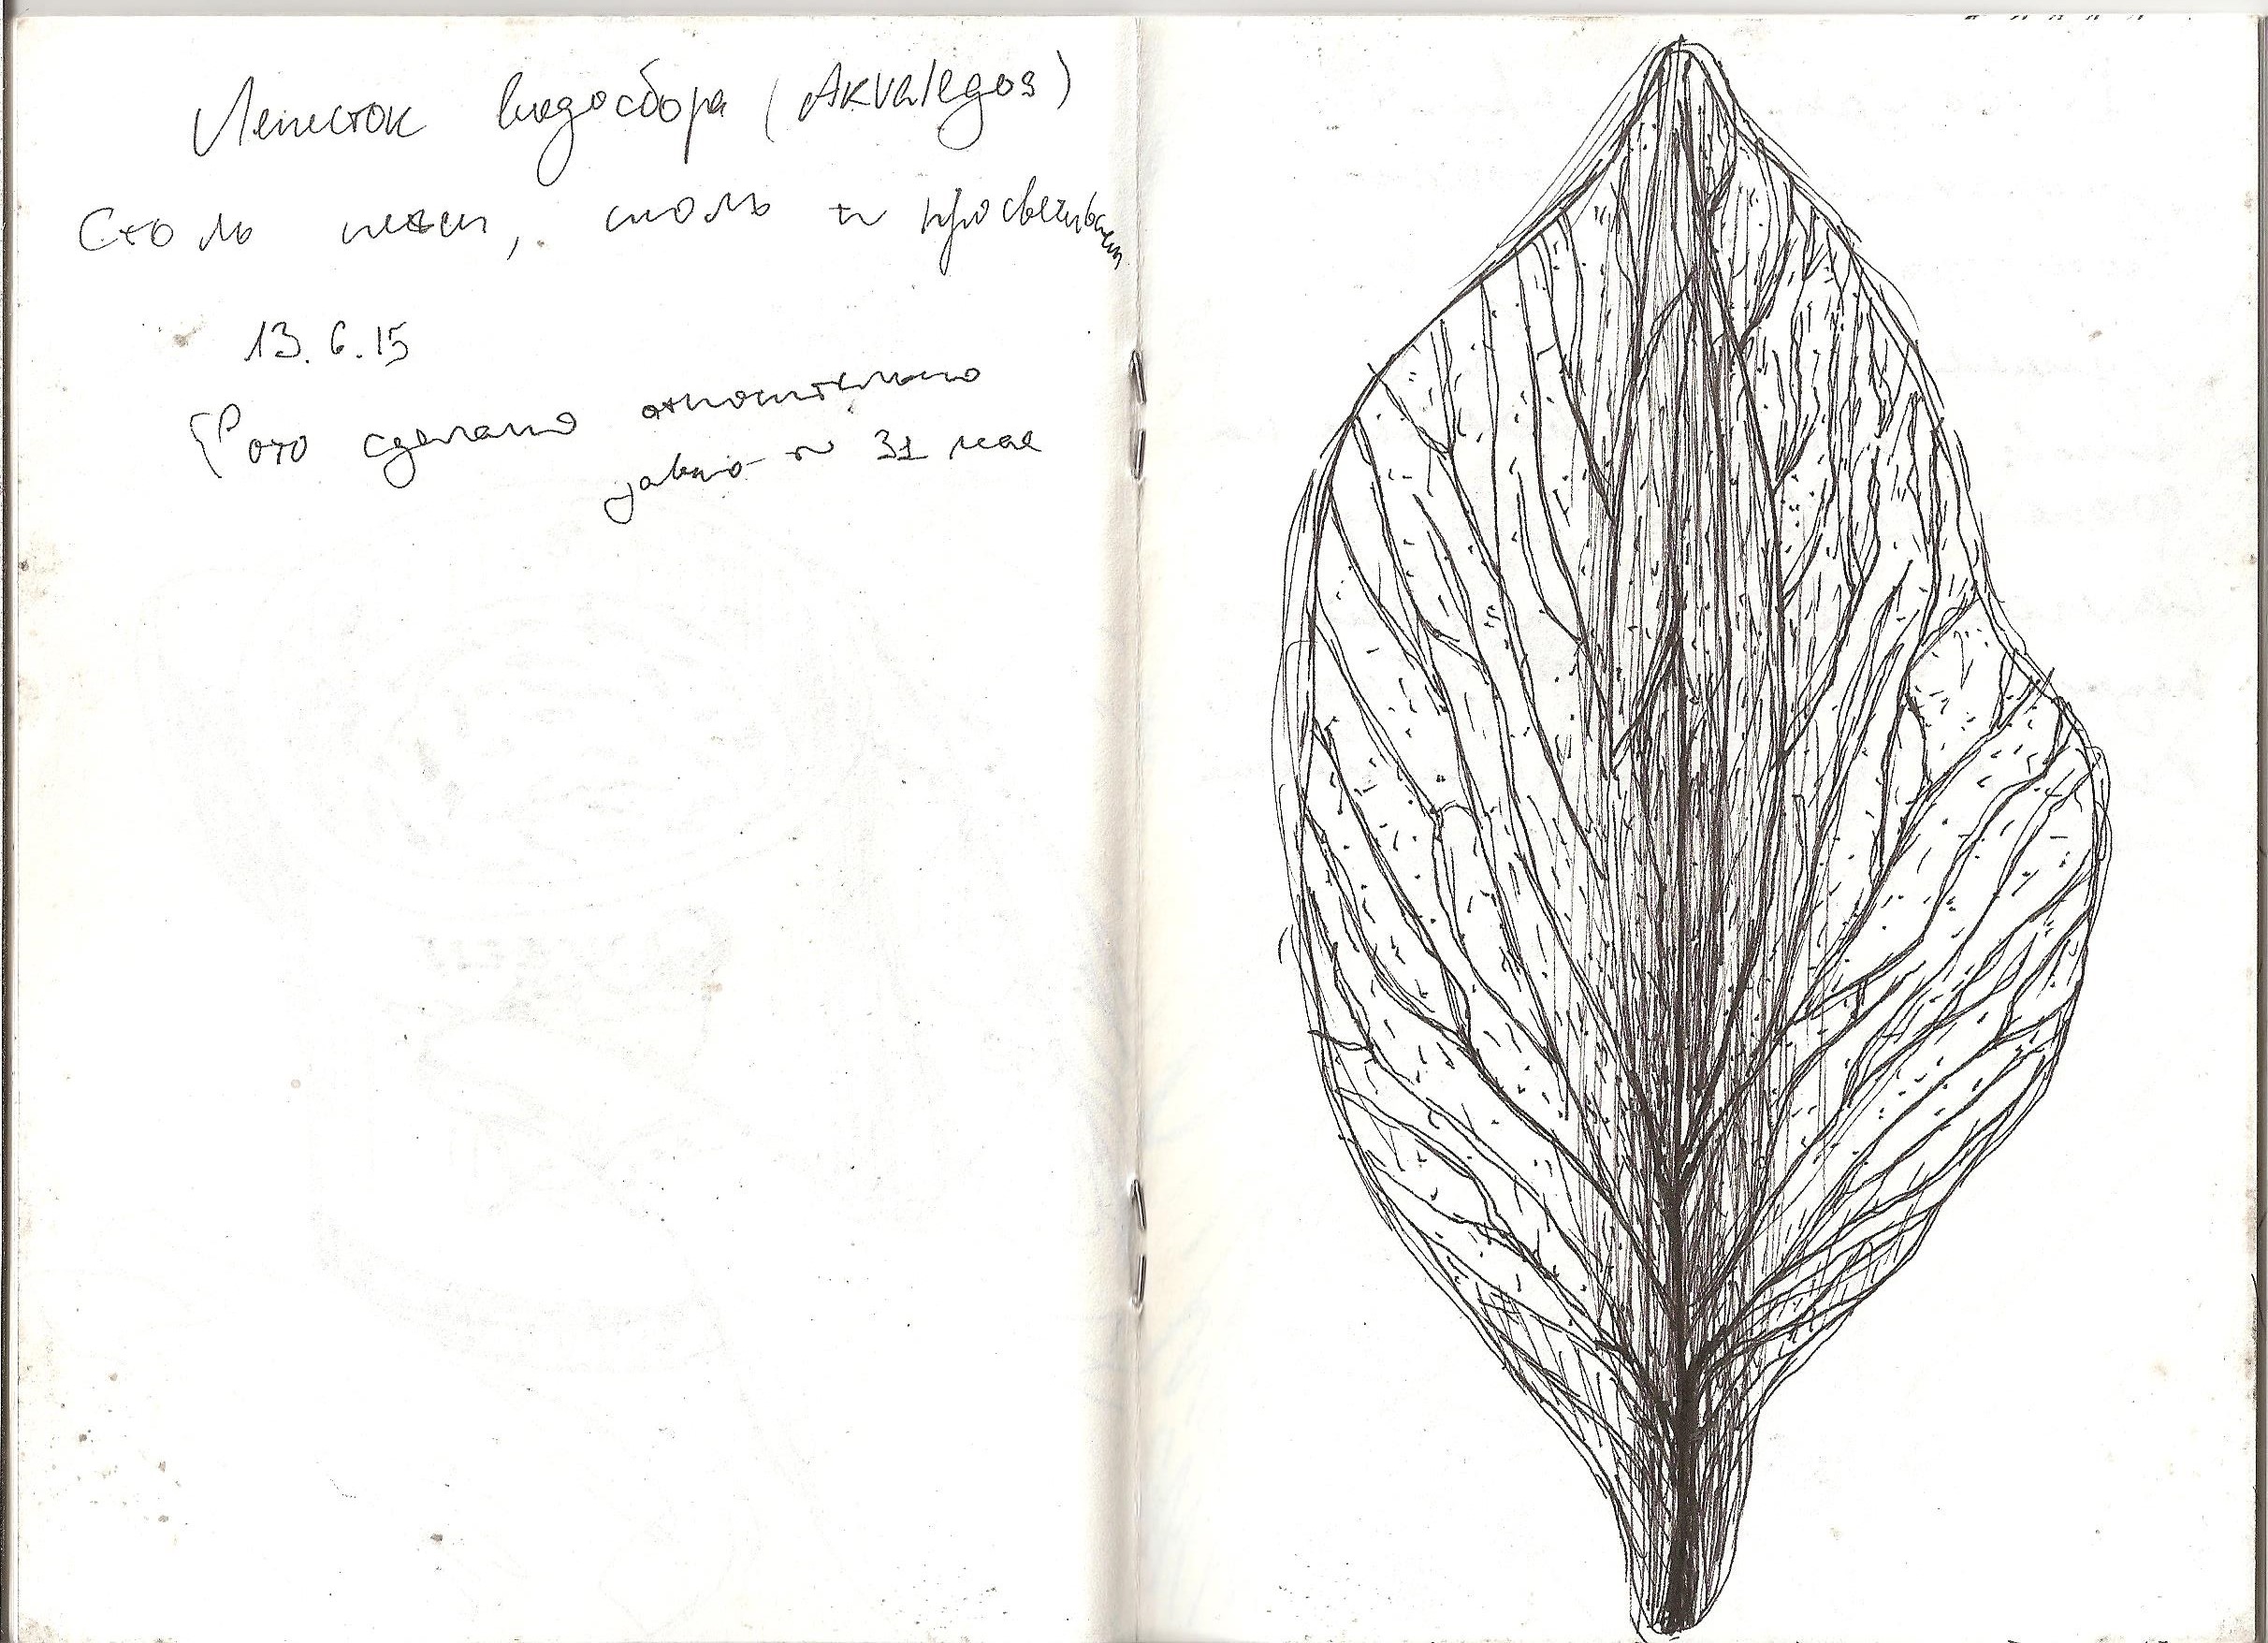 Лепесток водосбора (Akvalegos)
Столь нежен, столь ~ просвечивает
13.6.15
Фото сделано относительно
давно ~ 31 мая